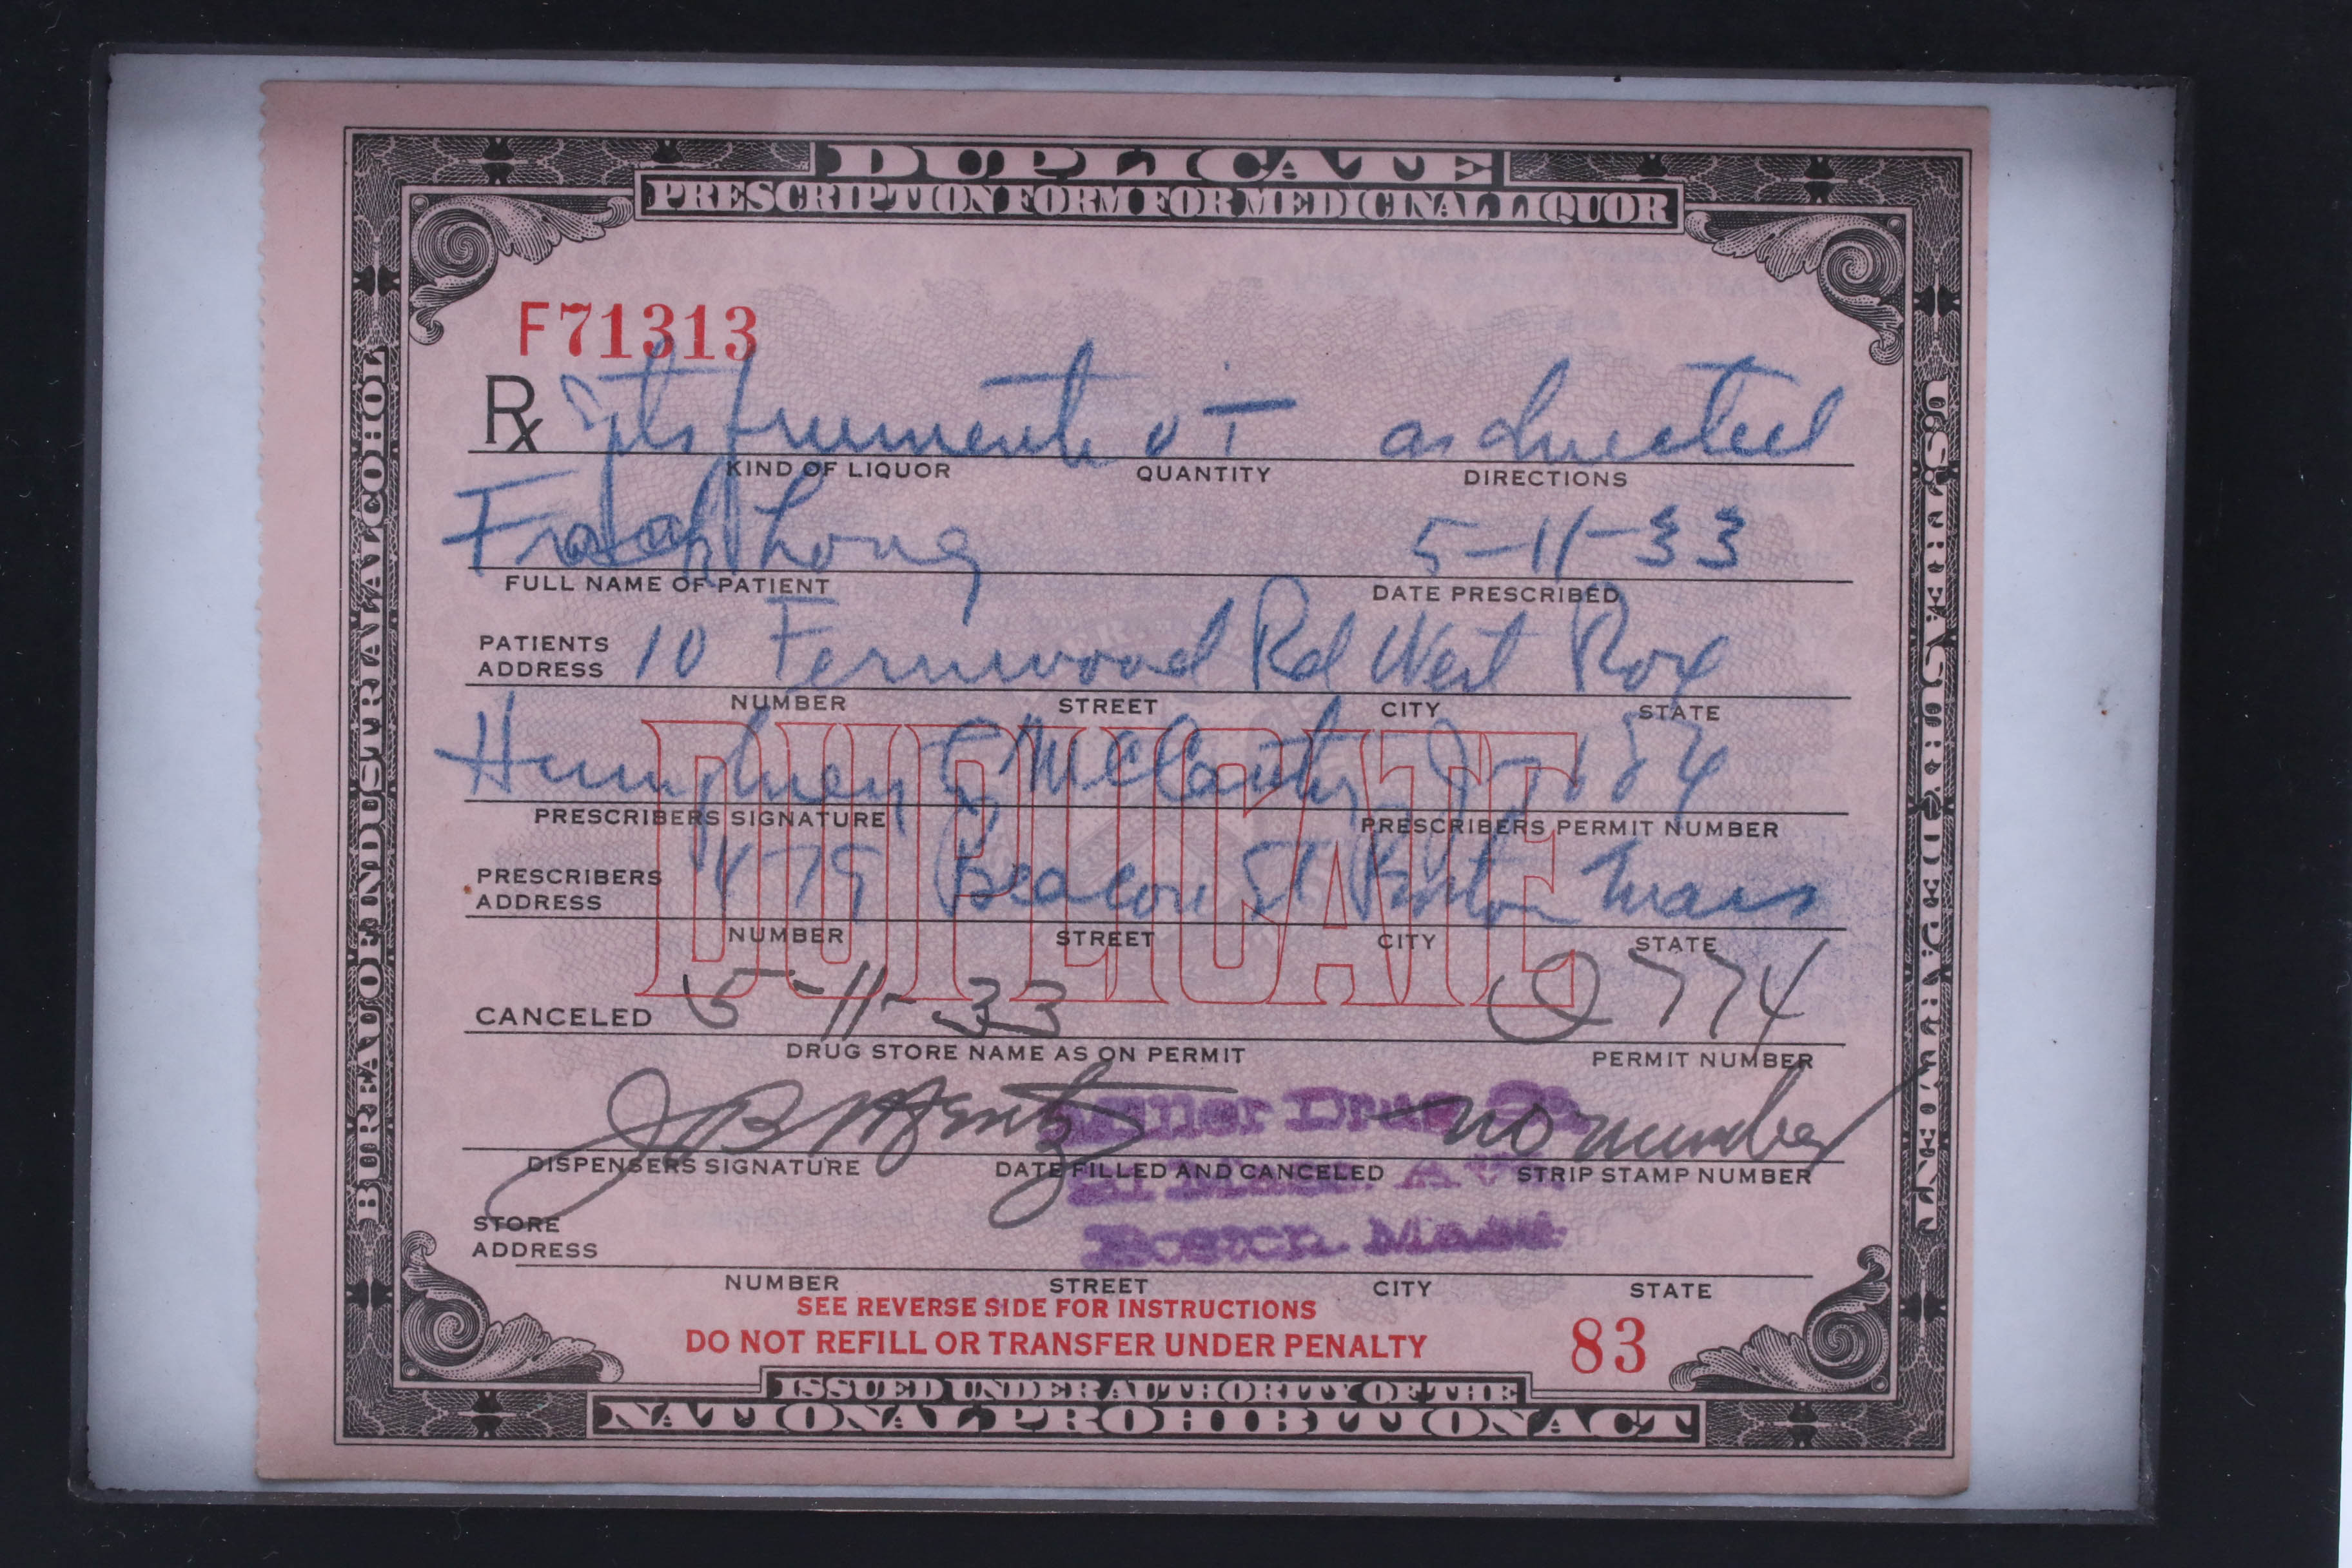 DUPLICATE
PRESCRIPTION FORM FOR MEDICINAL LIQUOR
BUREAU OF INDUSTRIAL ALCOHOL
U.S. TREASURY DEPARTMENT
F71313
Rx frumenti as directed
KIND OF LIQUOR QUANTITY DIRECTIONS
Long 5-11-33
FULL NAME OF PATIENT DATE PRESCRIBED
PATIENTS ADDRESS 10 Fernwood Rd West Rox
NUMBER STREET CITY STATE
DUPLICATE
Humphrey McCarthy
PRESCRIBERS SIGNATURE PRESCRIBERS PERMIT NUMBER
PRESCRIBERS ADDRESS 479 Beacon St Boston Mass
NUMBER STREET CITY STATE
CANCELED 5-11-33 774
DRUG STORE NAME AS ON PERMIT PERMIT NUMBER
J B Drug Co no number
DISPENSERS SIGNATURE DATE FILLED AND CANCELED STRIP STAMP NUMBER
Mass. Ave
STORE ADDRESS Boston. Mass.
NUMBER STREET CITY STATE
SEE REVERSE SIDE FOR INSTRUCTIONS
DO NOT REFILL OR TRANSFER UNDER PENALTY 83
ISSUED UNDER AUTHORITY OF THE
NATIONAL PROHIBITION ACT